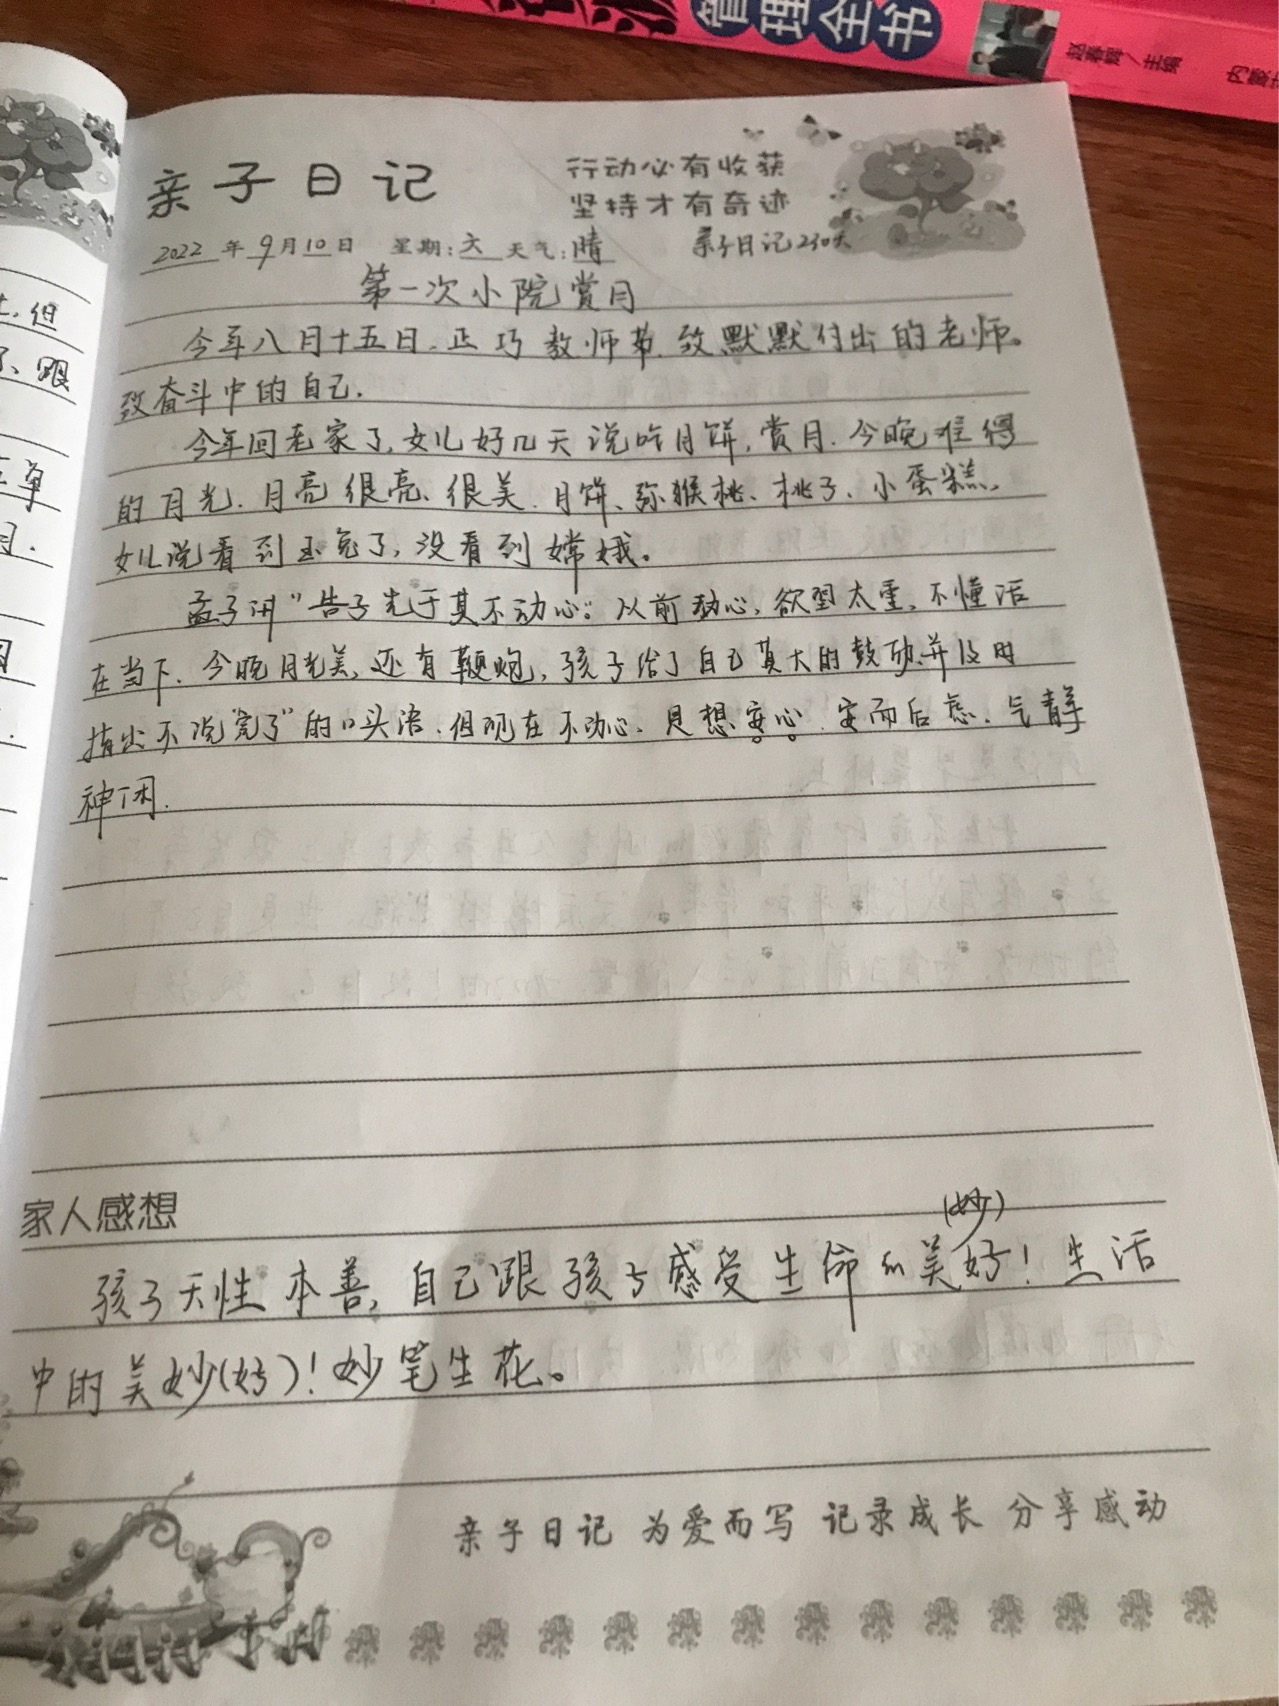 管理全书
赵春辉／主编
亲子日记
行动必有收获
坚持才有奇迹
2022年9月10日 星期:六 天气:晴 亲子日记230天
第一次小院赏月
今年八月十五日.正巧教师节.致默默付出的老师。
致奋斗中的自己.
今年回老家了,女儿好几天说吃月饼,赏月.今晚难得
的月光.月亮很亮、很美.月饼、弥猴桃、桃子、小蛋糕.
女儿说看到玉兔了,没看到嫦娥。
孟子讲"告子先于其不动心":以前动心,欲望太重,不懂活
在当下.今晚月光美,还有鞭炮,孩子给了自己莫大的鼓励,并及时
指出不说"完了"的口头语.但现在不动心.只想安心.定而后虑.气静
神闲.
家人感想
(妙)
孩子天性本善,自己跟孩子感受生命的美好!生活
中的美妙(好)!妙笔生花。
亲子日记 为爱而写 记录成长 分享感动